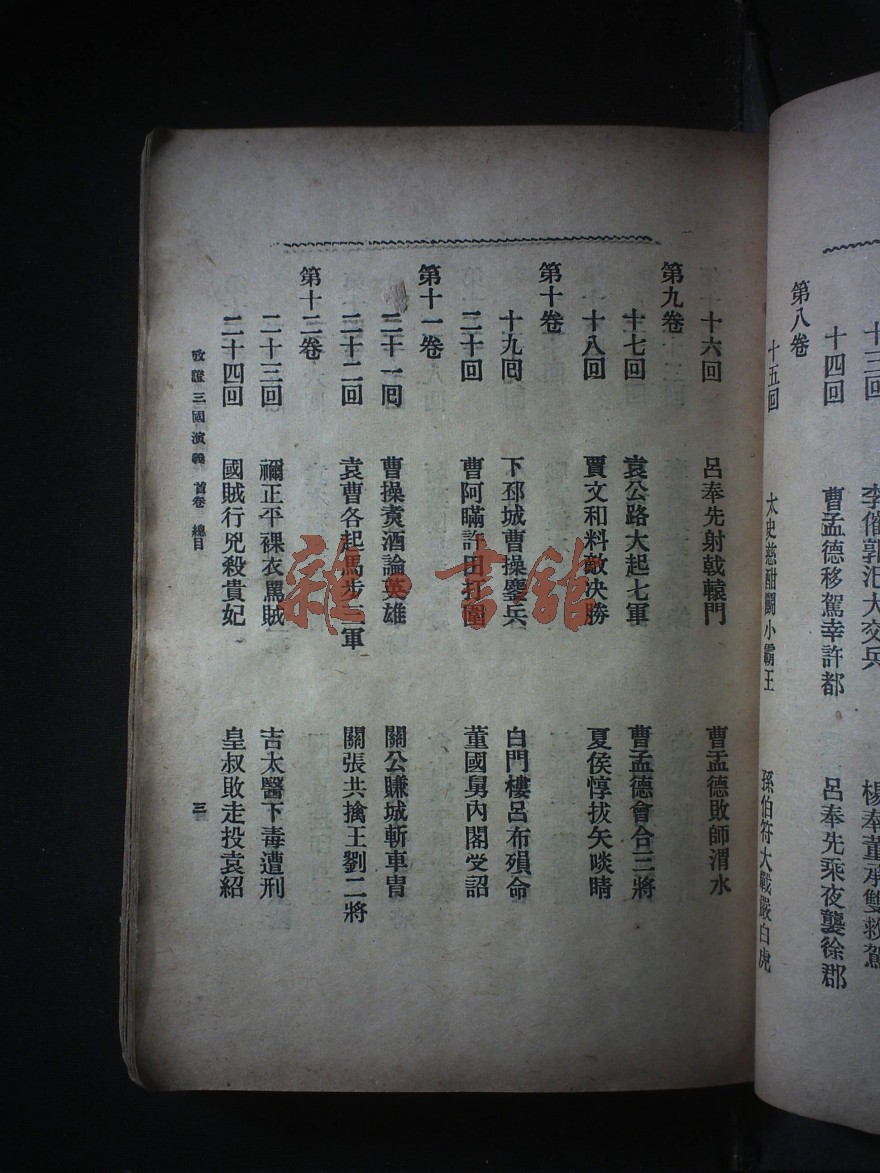 十三回 李傕郭汜大交兵 楊奉董承雙救駕
十四回 曹孟德移駕幸許都 呂奉先乘夜襲徐郡
第八卷
十五回 太史慈酣鬬小霸王 孫伯符大戰嚴白虎
十六回 呂奉先射戟轅門 曹孟德敗師淯水
第九卷
十七回 袁公路大起七軍 曹孟德會合三將
十八回 賈文和料敵決勝 夏侯惇拔矢啖睛
第十卷
十九回 下邳城曹操鏖兵 白門樓呂布殞命
二十回 曹阿瞞許田打圍 董國舅內閣受詔
第十一卷
二十一回 曹操煑酒論英雄 關公賺城斬車冑
二十二回 袁曹各起馬步三軍 關張共擒王劉二將
第十二卷
二十三回 禰正平裸衣罵賊 吉太醫下毒遭刑
二十四回 國賊行兇殺貴妃 皇叔敗走投袁紹
攷證三國演義 首卷 總目 三
雜·書館